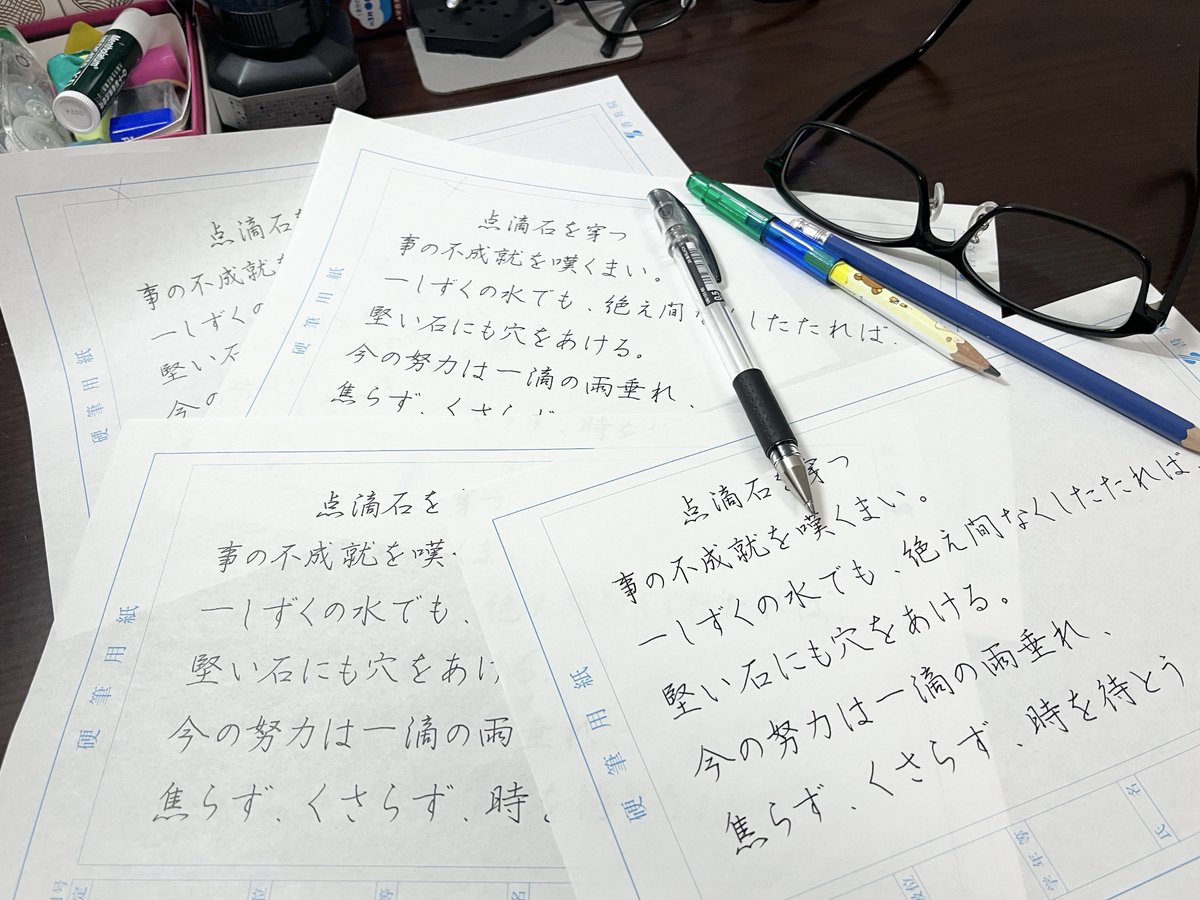 点滴石を
事の不成就を
一しずくの
堅い石
今の
硬筆用紙
点滴石を穿つ
事の不成就を嘆くまい。
一しずくの水でも、絶え間な したたれば、
堅い石にも穴をあける。
今の努力は一滴の雨垂れ、
焦らず、くさらず、時も
硬筆用紙
書育院
点滴石を
事の不成就を嘆く
一しずくの水でも、
堅い石にも穴をあけ
今の努力は一滴の雨
焦らず、くさらず、時
硬筆用紙
点滴石 穿つ
事の不成就を嘆くまい。
一しずくの水でも、絶え間なくしたたれば、
堅い石にも穴をあける。
今の努力は一滴の雨垂れ、
焦らず、くさらず、時を待とう
硬筆用紙
学年等
氏名